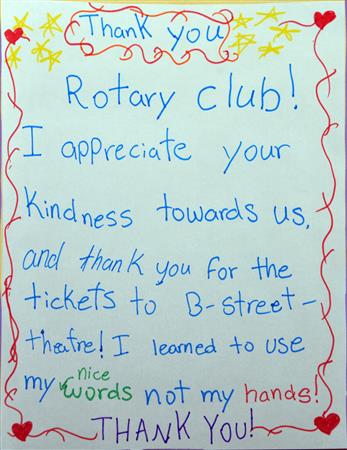 Thank you
Rotary club!
I appreciate your
kindness towards us,
and thank you for the
tickets to B-street-
theatre! I learned to use
my nice words not my hands!
THANK YOU!